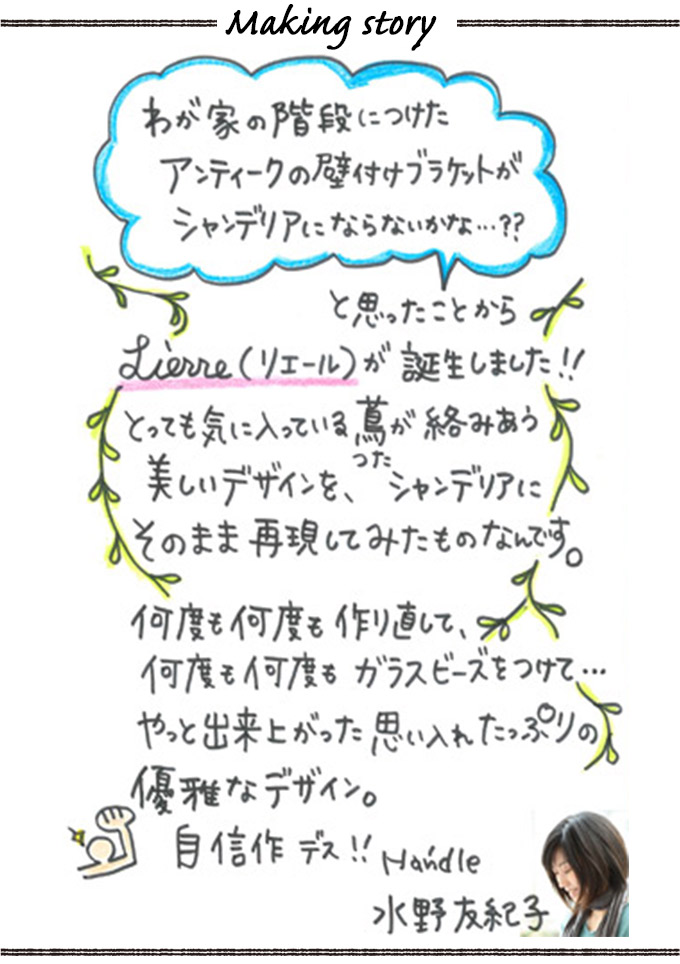 Making story
わが家の階段につけた
アンティークの壁付けブラケットが
シャンデリアにならないかな…??
と思ったことから
Lierre(リエール)が誕生しました!!
とっても気に入っている蔦が絡みあう
つた
美しいデザインを、シャンデリアに
そのまま再現してみたものなんです。
何度も何度も作り直して、
何度も何度もガラスビーズをつけて…
やっと出来上がった思い入れたっぷりの
優雅なデザイン。
自信作デス!! Handle
水野友紀子